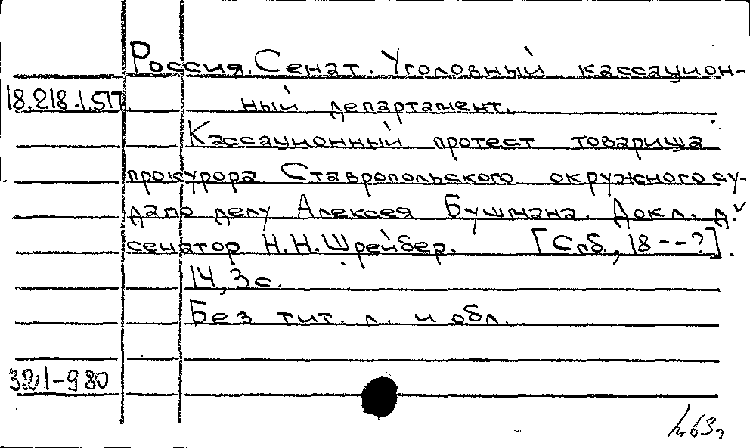 Россия. Сенат. Уголовный кассацион-
18.218.1.517. ный департамент.
Кассационный протест товарища
прокурора Ставропольского окружного су-
да по делу Алексея Бушмана. Докл. д.
сенатор Н.Н. Шрейбер. [Спб., 18--?].
14, 3 с.
Без тит. л. и обл.
321-980